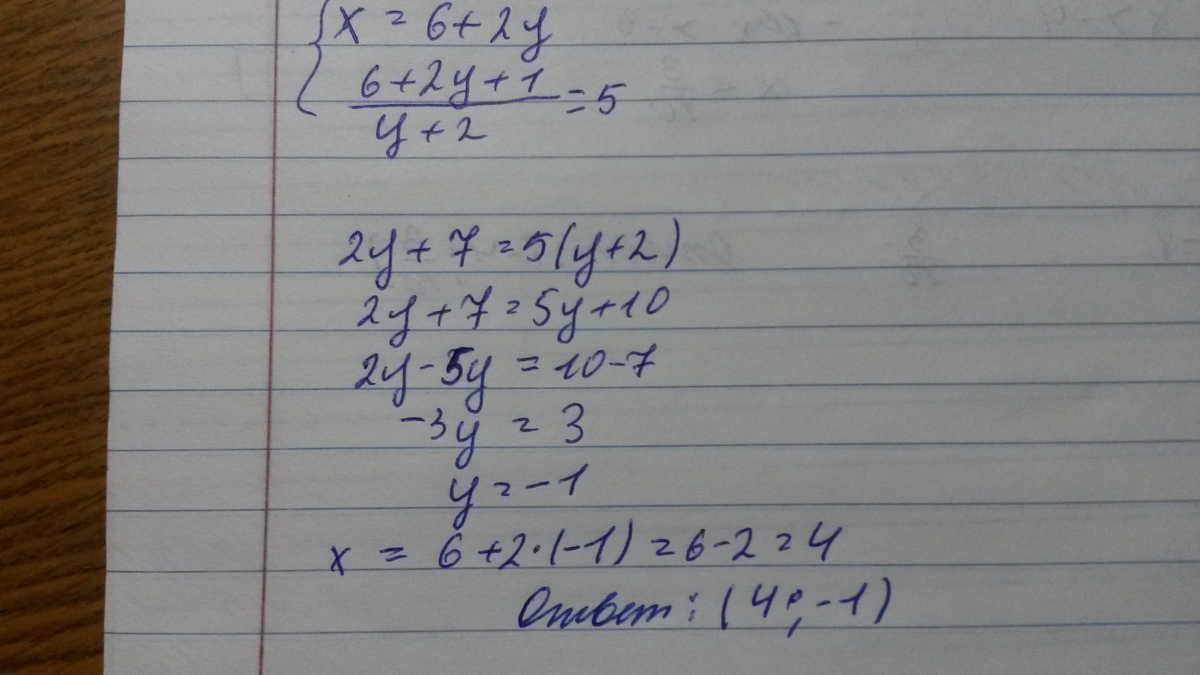 { x = 6+2y
6+2y+1
y+2
=5
2y+7=5(y+2)
2y+7=5y+10
2y-5y=10-7
-3y=3
y=-1
x = 6+2·(-1)=6-2=4
Ответ: (4;-1)